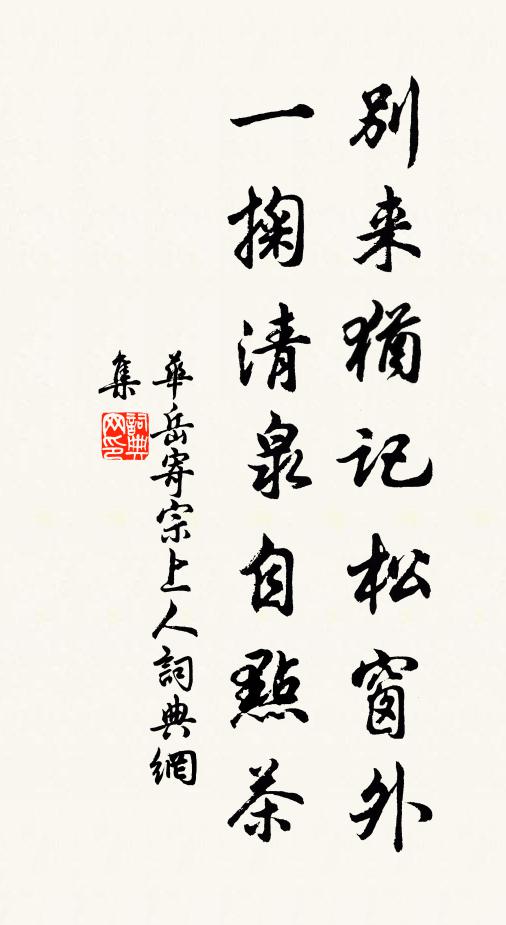 别来猶记松窗外
一掬清泉自點茶
華岳寄宗上人詞典網
集
詞典网印